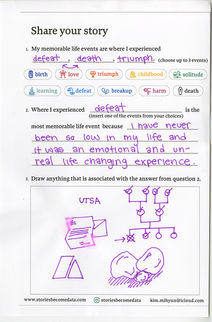 Share your story
1. My memorable life events are where I experienced
defeat, death, triumph (choose up to 3 events)
birth love triumph childhood solitude
learning defeat breakup harm death
2. Where I experienced defeat is the
(insert one of the events from your choices)
most memorable life event because I have never
been so low in my life and
it was an emotional and un-
real life changing experience.
3. Draw anything that is associated with the answer from question 2.
UTSA
www.storiesbecomedata.com storiesbecomedata kim.mihyun@icloud.com